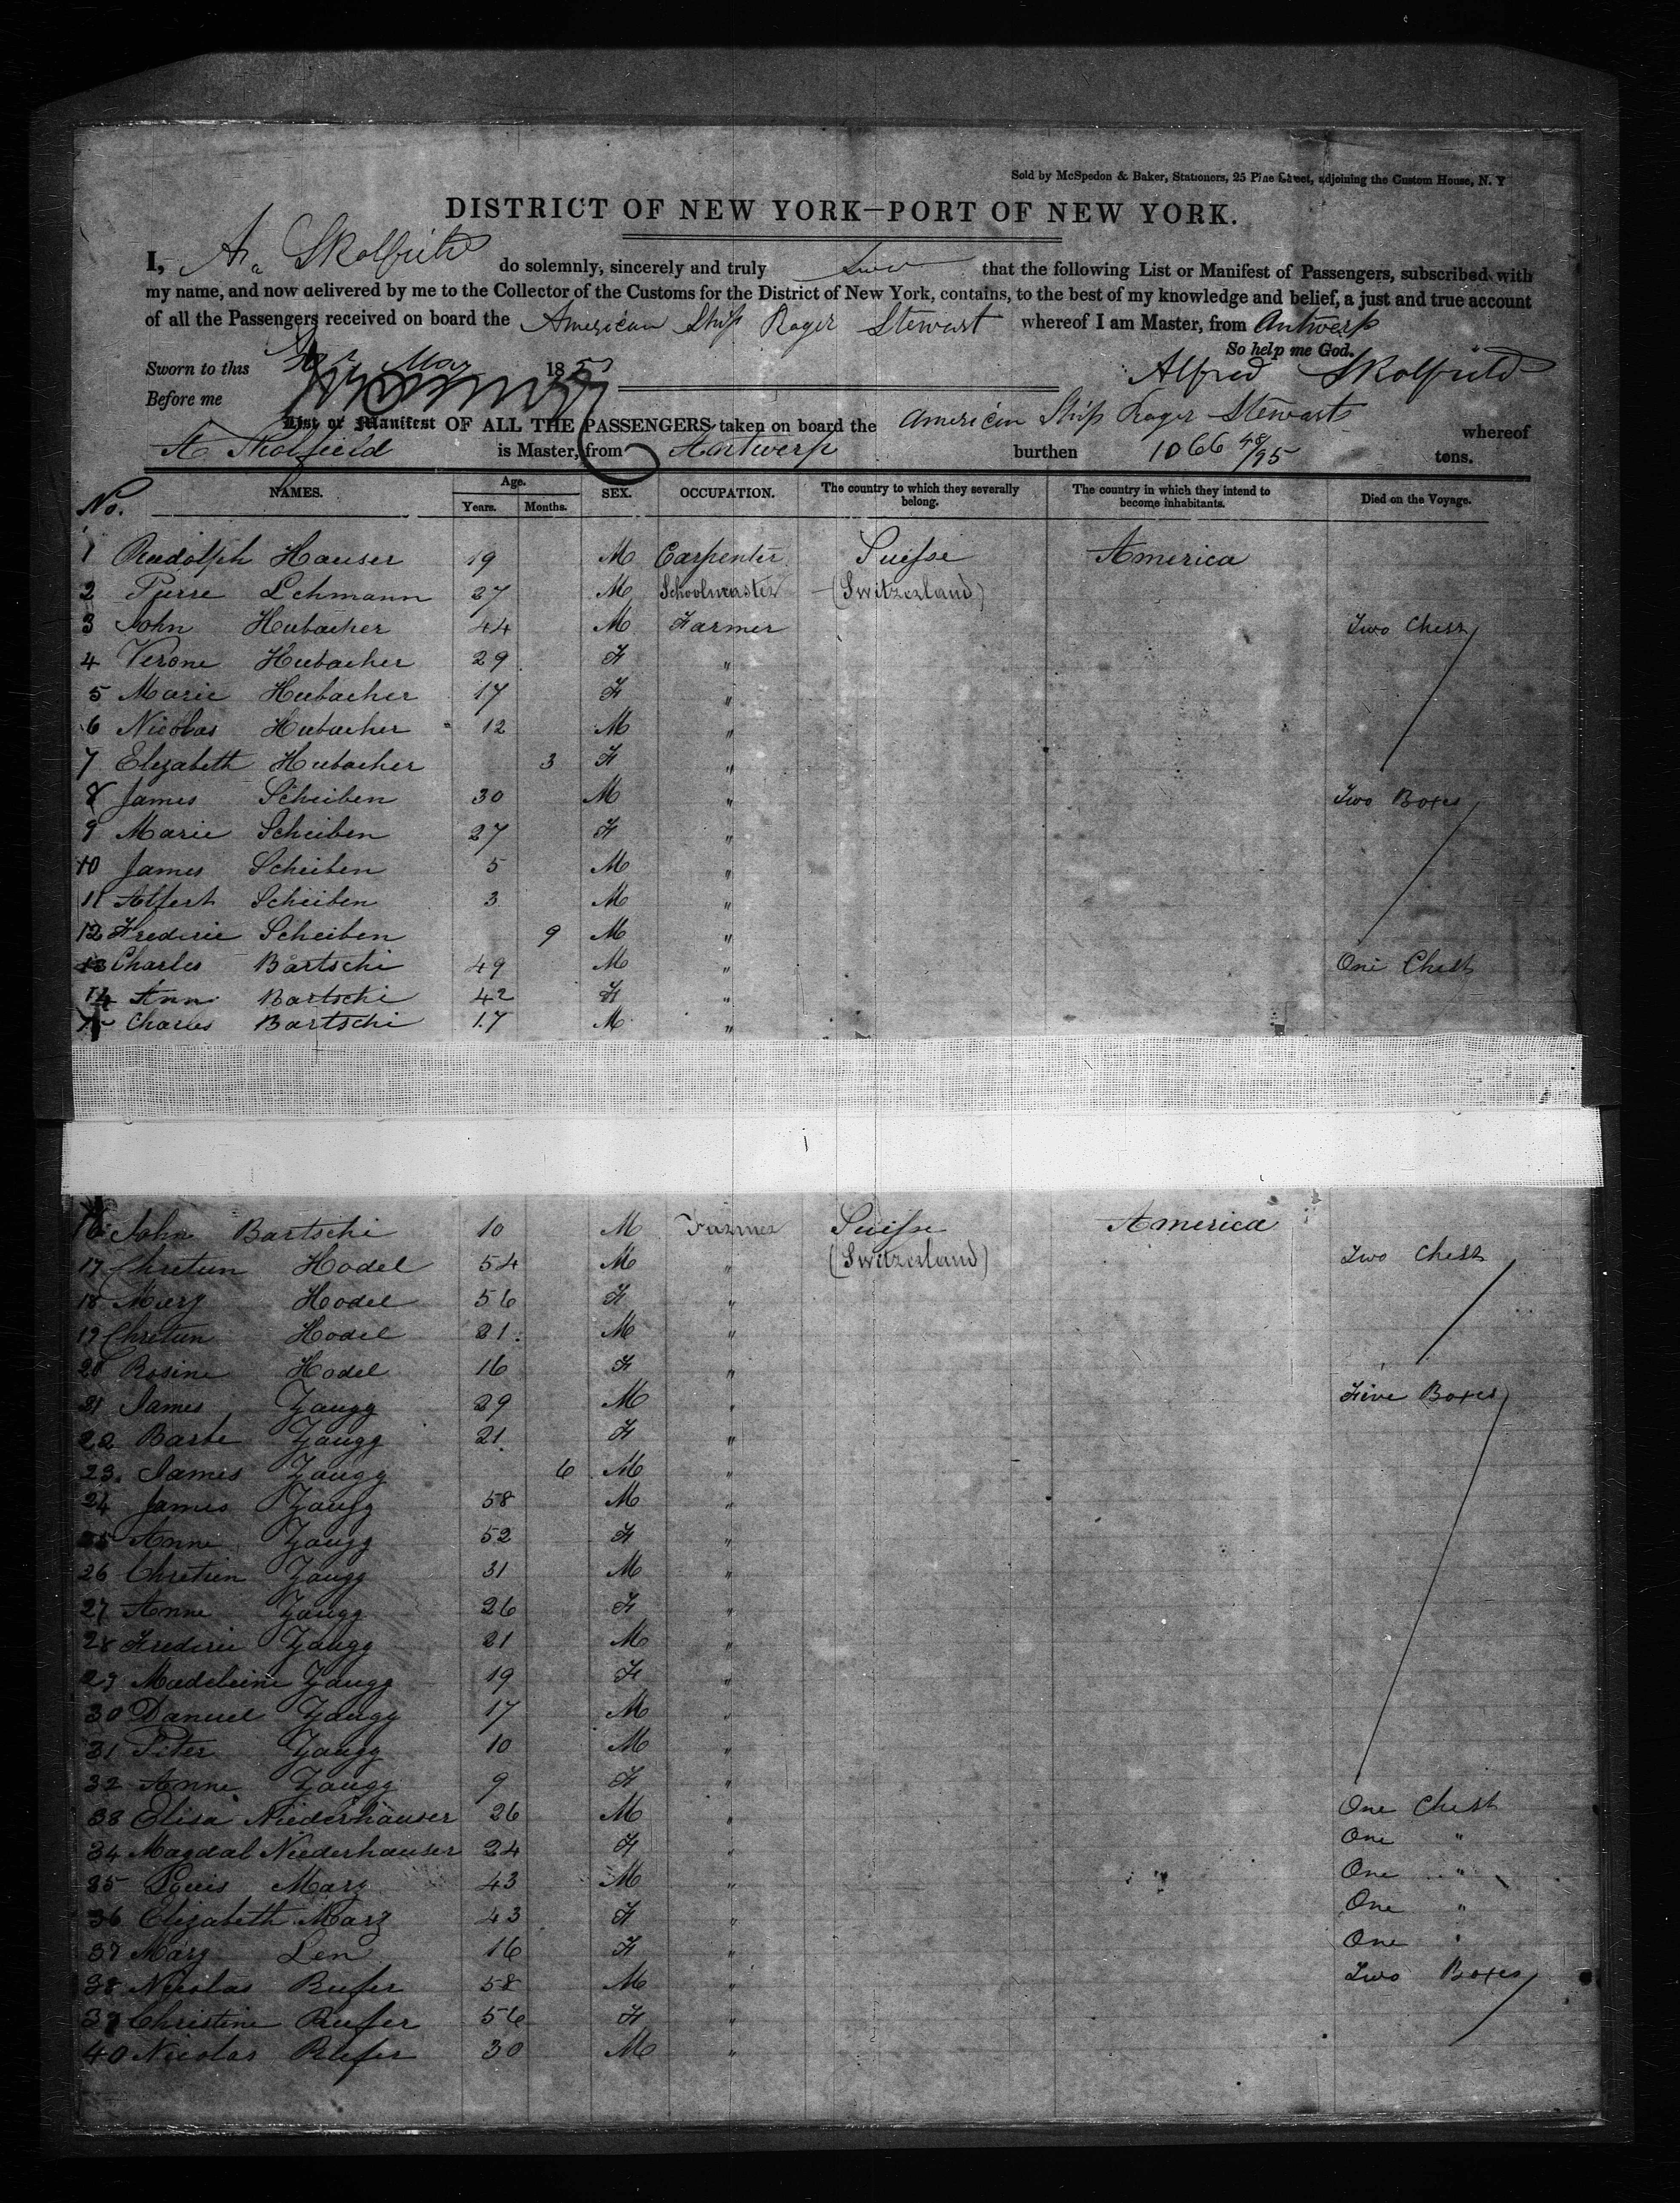 Sold by McSpedon & Baker, Stationers, 25 Pine Street, adjoining the Custom House, N. Y
DISTRICT OF NEW YORK—PORT OF NEW YORK.
I, A. Skolfield do solemnly, sincerely and truly that the following List or Manifest of Passengers, subscribed with
my name, and now delivered by me to the Collector of the Customs for the District of New York, contains, to the best of my knowledge and belief, a just and true account
of all the Passengers received on board the American Ship Roger Stewart whereof I am Master, from Antwerp
So help me God.
Sworn to this May 185 Alfred Skolfield
Before me
List or Manifest OF ALL THE PASSENGERS taken on board the American Ship Roger Stewart whereof
A Skolfield is Master, from Antwerp burthen 1066 48/95 tons.
No. NAMES. Age. Years. Months. SEX. OCCUPATION. The country to which they severally belong. The country in which they intend to become inhabitants. Died on the Voyage.
1 Rudolph Hauser 19 M Carpenter Suisse America
2 Pierre Lehmann 27 M Schoolmaster (Switzerland)
3 John Hubacher 44 M Farmer Two Chests
4 Verone Hubacher 29 F "
5 Marie Hubacher 17 F "
6 Nicolas Hubacher 12 M "
7 Elizabeth Hubacher 3 F "
8 James Scheiben 30 M " Two Boxes
9 Marie Scheiben 27 F "
10 James Scheiben 5 M "
11 Alfert Scheiben 3 M "
12 Frederic Scheiben 9 M "
13 Charles Bartschi 49 M " One Chest
14 Ann Bartschi 42 F "
15 Charles Bartschi 17 M "
16 John Bartschi 10 M Farmer Suisse America
17 Chretien Hodel 54 M " (Switzerland) Two Chests
18 Mary Hodel 56 F "
19 Chretien Hodel 21 M "
20 Rosine Hodel 16 F "
21 James Zaugg 29 M " Five Boxes
22 Barbe Zaugg 21 F "
23 James Zaugg 6 M "
24 James Zaugg 58 M "
25 Anne Zaugg 52 F "
26 Chretien Zaugg 31 M "
27 Anne Zaugg 26 F "
28 Frederic Zaugg 21 M "
29 Madeleine Zaugg 19 F "
30 Daniel Zaugg 17 M "
31 Peter Zaugg 10 M "
32 Anne Zaugg 9 F "
33 Elisa Niederhauser 26 M " One Chest
34 Magdal Niederhauser 24 F " One "
35 Louis Marz 43 M " One "
36 Elizabeth Marz 43 F " One "
37 Mary Len 16 F " One "
38 Nicolas Rufer 58 M " Two Boxes
39 Christine Rufer 56 F "
40 Nicolas Rufer 30 M "